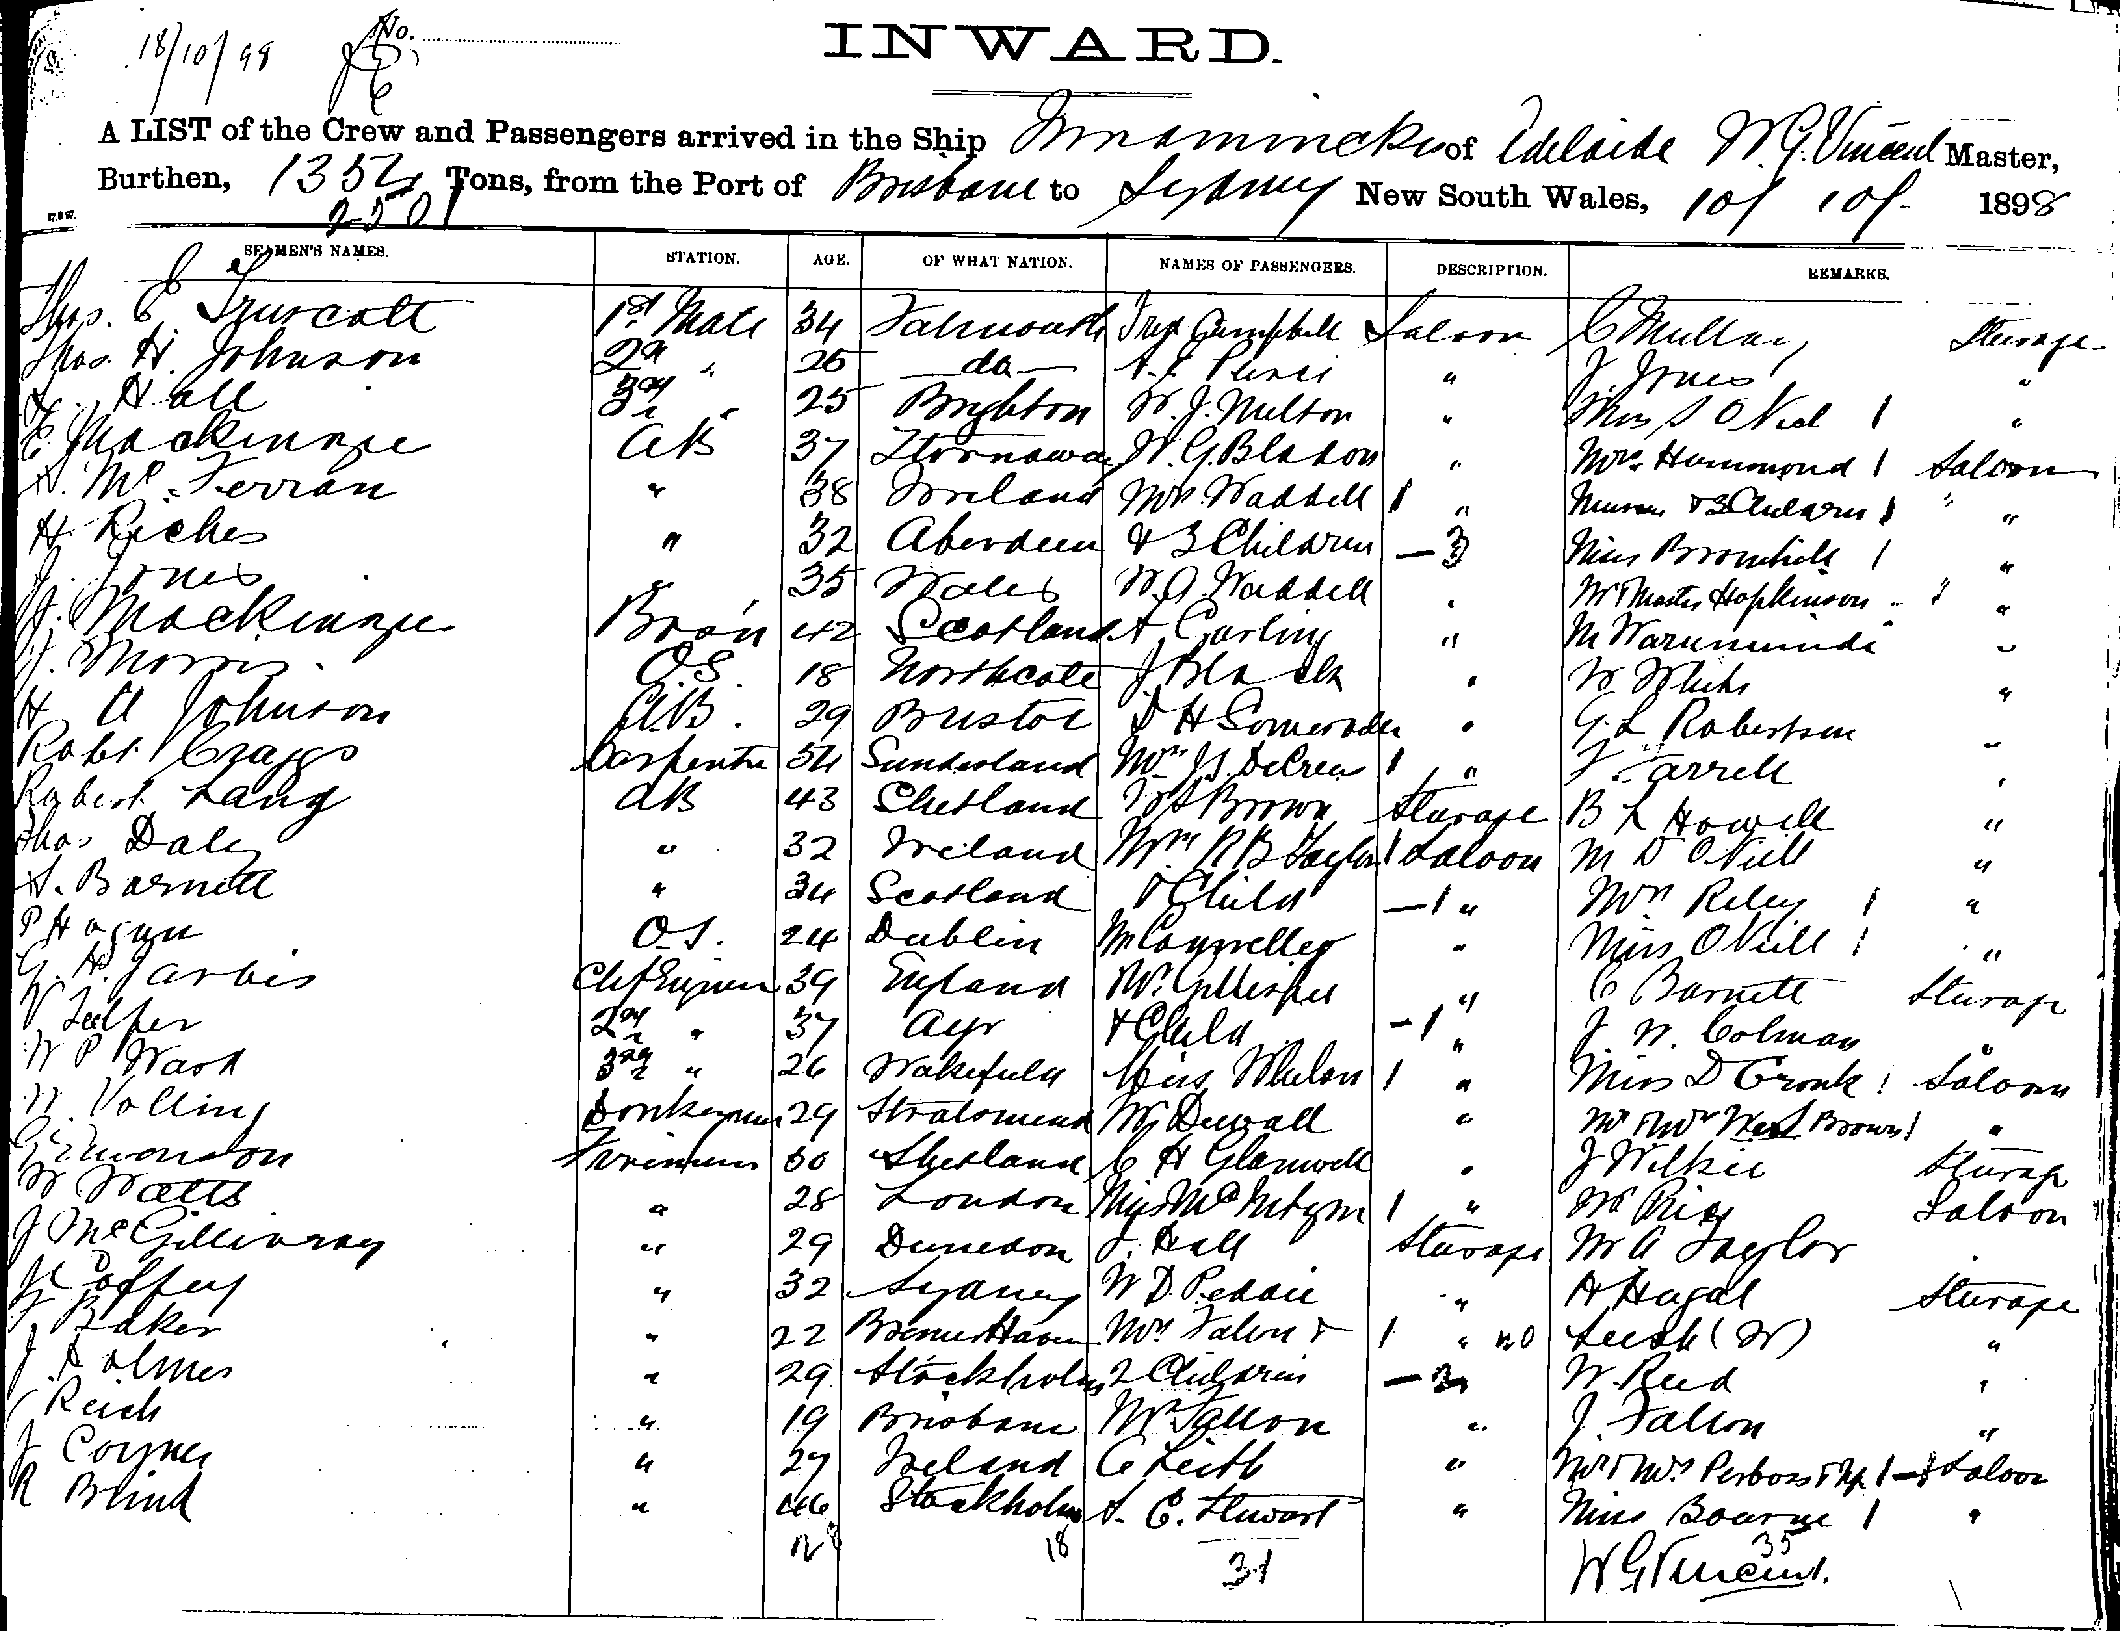 18/10/98 No.
INWARD.
A LIST of the Crew and Passengers arrived in the Ship Innamincka of Adelaide W. G. Vincent Master,
Burthen, 1352 Tons, from the Port of Brisbane to Sydney New South Wales, 10/10/ 1898
2501
SEAMEN'S NAMES. STATION. AGE. OF WHAT NATION. NAMES OF PASSENGERS. DESCRIPTION. REMARKS.
Thos. E Truscott 1st Mate 34 Falmouth Campbell Saloon C Mullany Steerage
Thos. H. Johnson 2nd " 26 — do — " J. Jones "
Hall 3rd " 25 Brighton W. J. Milton " Miss S O'Neil 1 "
E. Mackenzie AB 37 Stornaway W. G. Bladon " Mrs. Hammond 1 Saloon
A. Mc. Ferran " 38 Ireland Mrs. Waddell 1 " Nurse & 3 Children 1 " "
H. Riches " 32 Aberdeen & 3 Children —3 Miss Bromhill 1 "
J. Jones " 35 Wales W. A. Waddell " Mr & Master Hopkinson " 1 "
J. Mackenzie Bosn 42 Scotland A Garling " M "
J. Morris. O.S. 18 Northcote J Black " W White "
H A Johnson A.B. 29 Bristol D H " G L Robertson "
Robt. Craggs Carpenter 54 Sunderland Mrs J S. DeCrew 1 " F Farrell "
Robert Lang AB 43 Shetland Brown Steerage B L Howell "
Thos Daly " 32 Ireland Mrs R B Taylor 1 Saloon M D O'Neill "
A. Barnett " 34 Scotland & Child —1 " Mrs Riley 1 "
P Hagan O.S. 24 Dublin M " Miss O'Neill 1 "
G. H. Jarvis Chf Engineer 39 England Mr. Gillespie " C Barnett Steerage
V Telfer 2nd " 37 Ayr & Child —1 " J. W. Colman "
W P Wash 3rd " 26 Wakefield Miss Whelan 1 " Miss D Cronk 1 Saloon
W. Volling Donkeyman 29 Stralsund W Duvall " Mr & Mrs West Brown 1 "
G Swanson Firemen 30 Shetland C H Glanwell " J Wilkie Steerage
W Watts " 28 London Miss McIntyre 1 " Mr Saloon
J McGillivray " 29 Dunedon J. Hall Steerage W A Taylor "
J Coffey " 32 Sydney W D. Peddie " H Hugal Steerage
F Baker " 22 BremerHaven Mrs Falon & 1 " Leish (W) "
J. Holmes " 29 Stockholm 2 Children —2 W. Reed "
C Reich " 19 Brisbane Mr Fallon " J. Fallon "
J Coyne " 27 Ireland C Leith " Mr & Mrs 1 Saloon
R Blind " 46 Stockholm A. E. Stewart " Miss Bourne 1 "
28 18 31 35
W G Vincent.